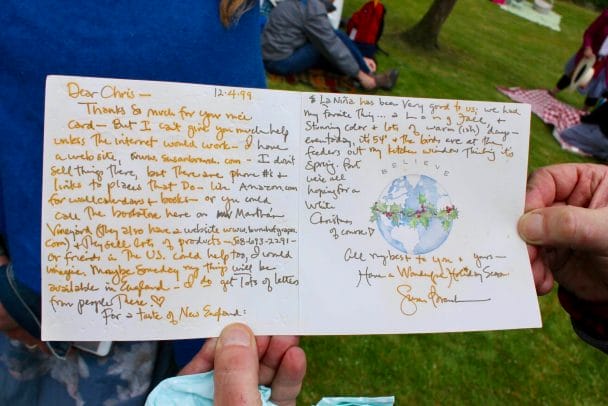 Dear Chris — 12.4.99
Thanks so much for your nice
card — But I can't give you much help
unless the internet would work — I have
a website, www.susanbranch.com — I don't
sell things there, but there are phone #'s &
links to places that Do — like Amazon.com
for wall calendars + books — or you could
call the bookstore here on Martha's
Vineyard (they also have a website www.bunchofgrapes.
com) + they sell lots of products — 508-693-2291 —
or friends in the U.S. could help too, I would
imagine. Maybe someday my things will be
available in England — I do get lots of letters
from people there. ♡
For a taste of New England:
& La Niña has been very good to us; we had
my favorite thing... a Long Fall, +
stunning color + lots of warm (ish) days —
even today, it's 54° + the birds are at the
feeders out my kitchen window thinking it's
Spring. But
we're all
hoping for a
White
Christmas
of course ♡
BELIEVE
All my best to you + yours —
Have a Wonderful Holiday Season
Susan Branch